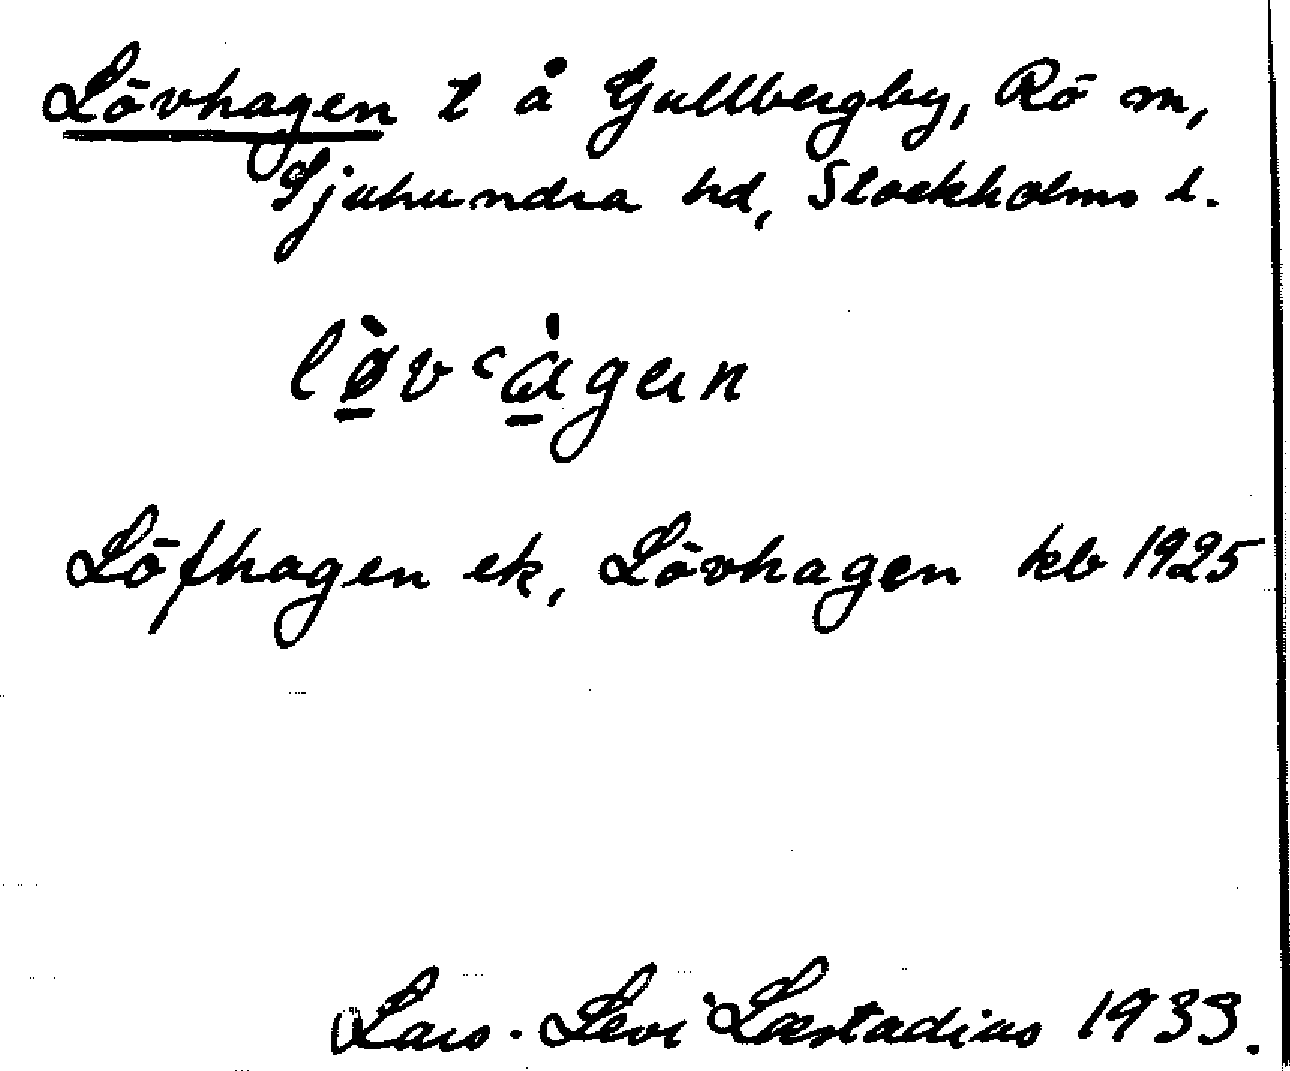 Lövhagen t å Gullbergby, Rö sn,
Sjuhundra hd, Stockholms l.
lø̱̀vʿa̱̍gan
Löfhagen ek, Lövhagen kb 1925
Lars-Levi Læstadius 1933.